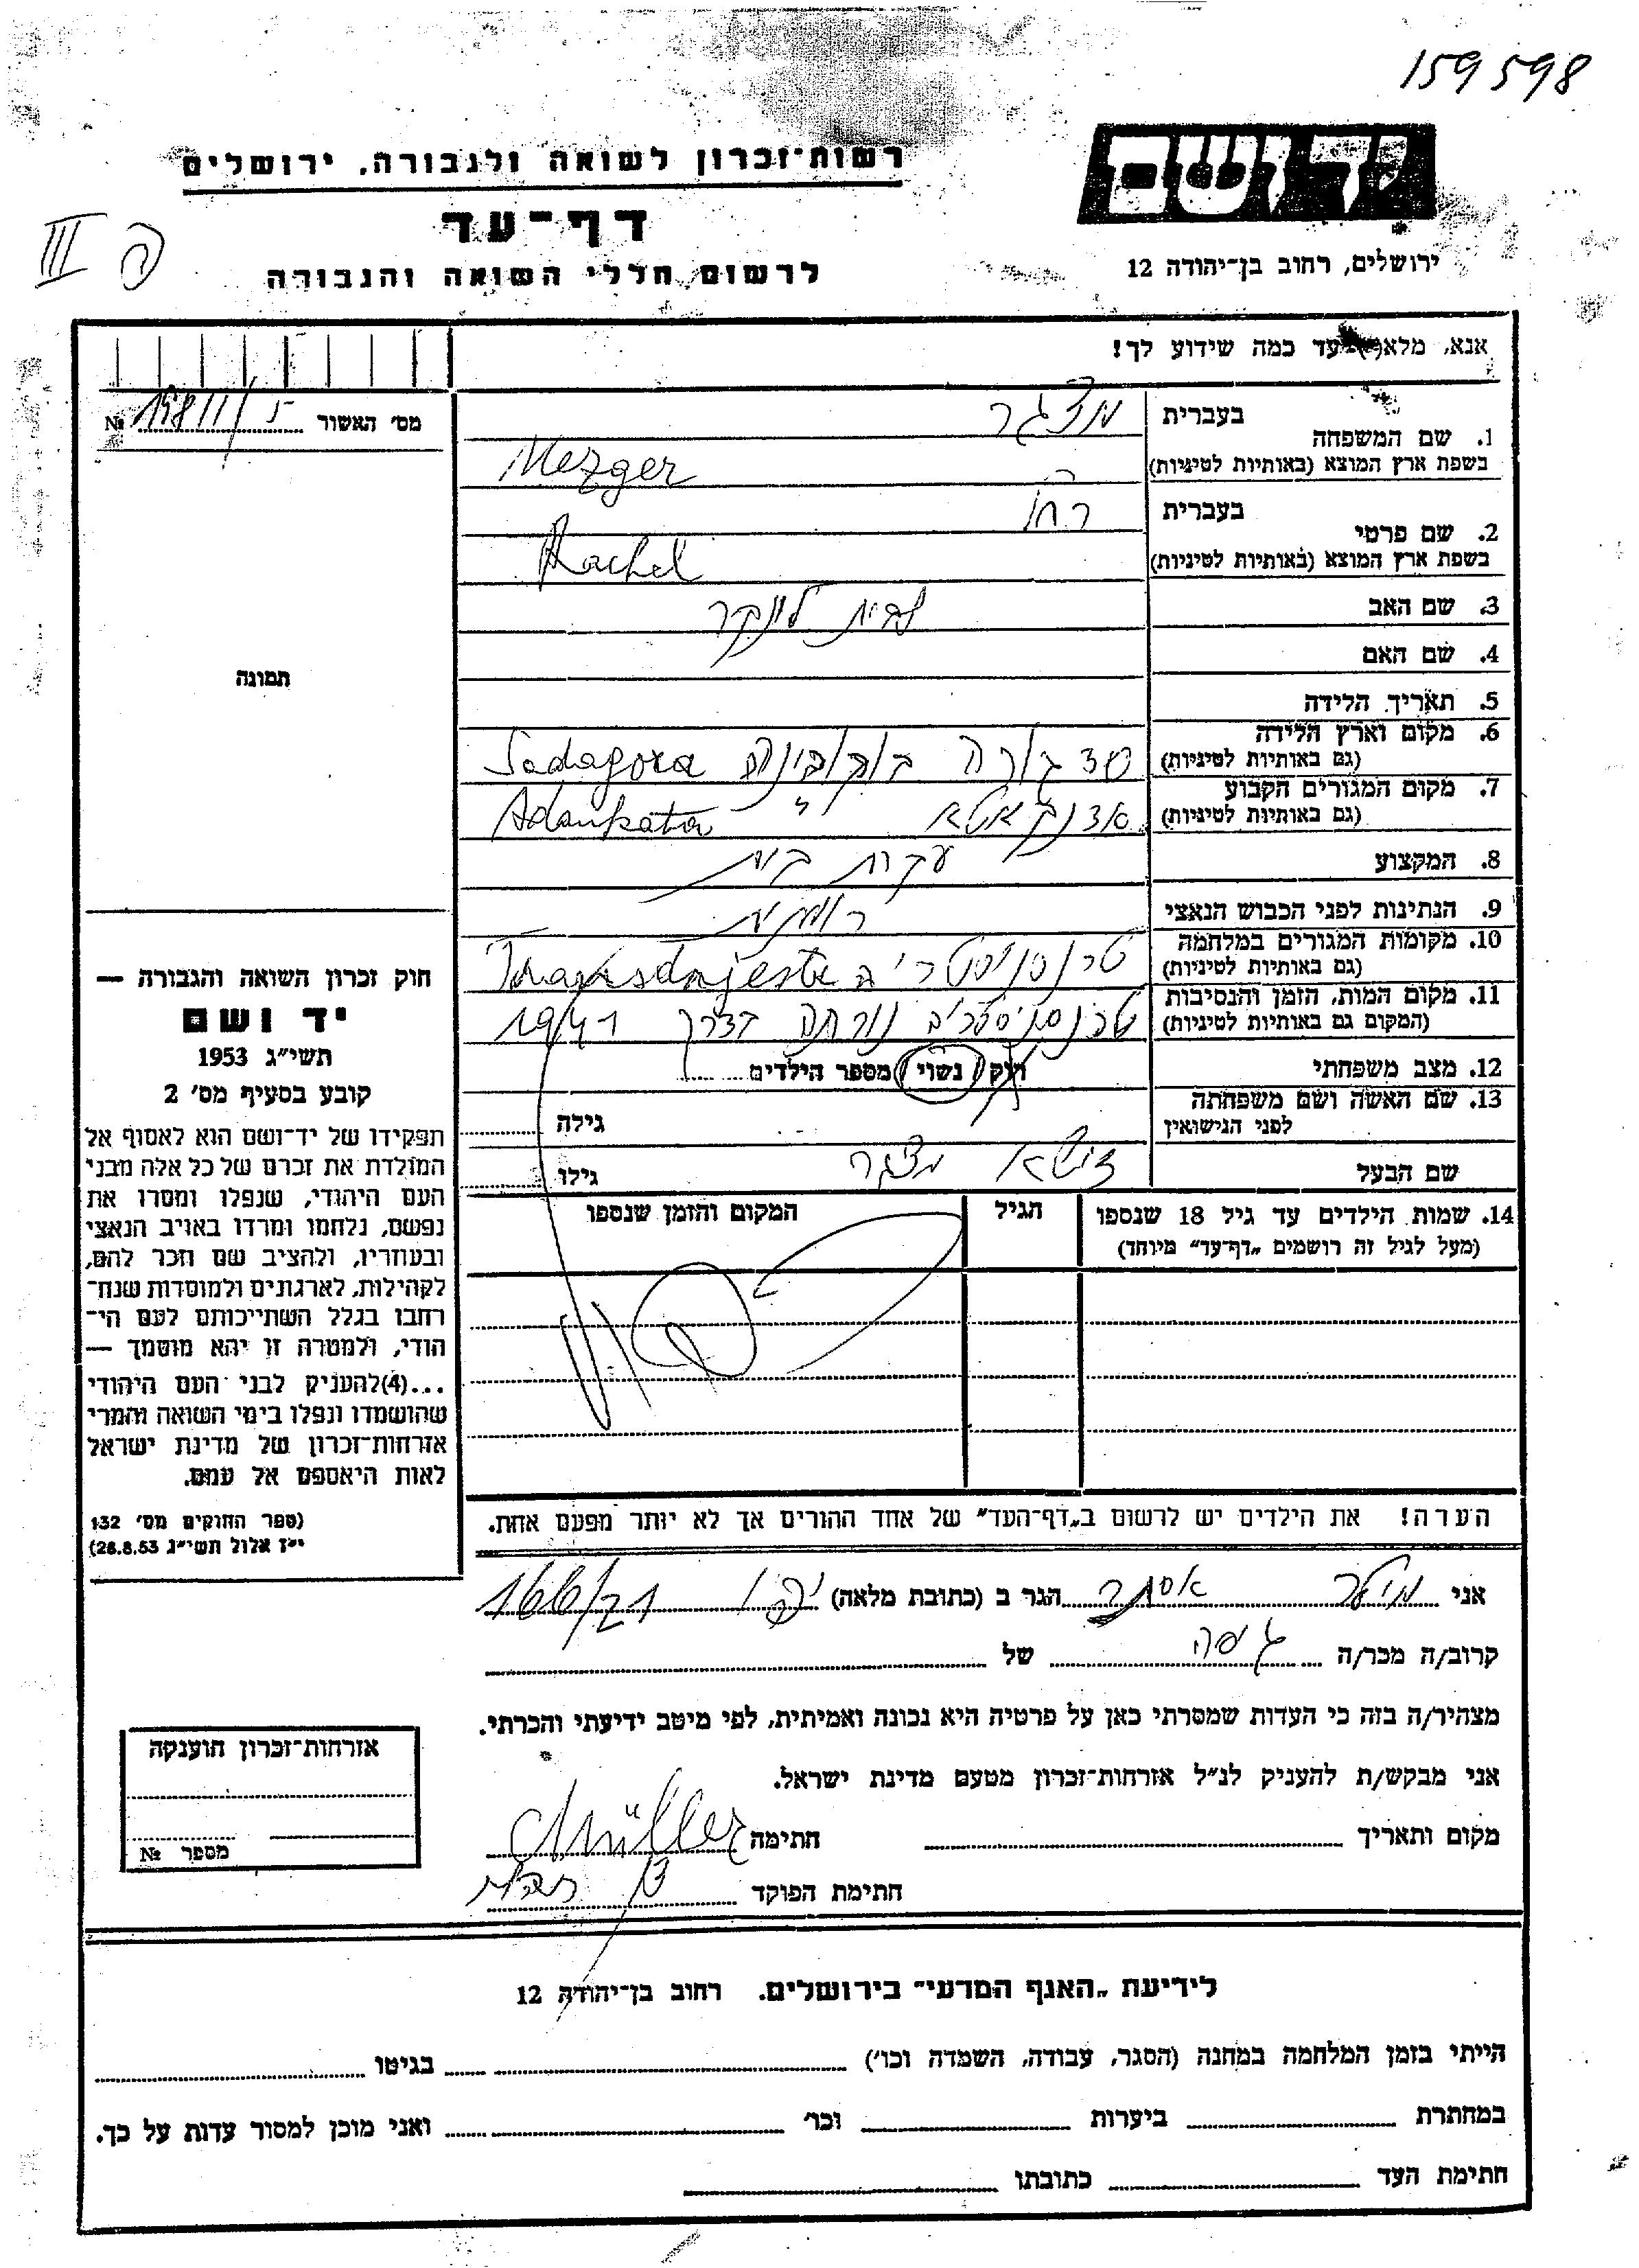 159598
יד ושם
רשות־זכרון לשואה ולגבורה, ירושלים
דף־עד
ירושלים, רחוב בן־יהודה 12
לרשום חללי השואה והגבורה
III
אנא, מלא עד כמה שידוע לך!
מס' האשור №
1. שם המשפחה
בעברית מצגר
בשפת ארץ המוצא (באותיות לטיניות) Mezger
2. שם פרטי
בעברית רחל
בשפת ארץ המוצא (באותיות לטיניות) Rachel
3. שם האב
4. שם האם
5. תאריך הלידה
6. מקום וארץ הלידה
(גם באותיות לטיניות) סדגורה בוקובינה Sadagora
7. מקום המגורים הקבוע
(גם באותיות לטיניות) אדנקאטא Adankata
8. המקצוע עקרת בית
9. הנתינות לפני הכבוש הנאצי רומנית
10. מקומות המגורים במלחמה
(גם באותיות לטיניות) טרנסניסטריה
11. מקום המות, הזמן והנסיבות
(המקום גם באותיות לטיניות) טרנסניסטריה בדרך 1941
12. מצב משפחתי
רוק נשוי מספר הילדים
13. שם האשה ושם משפחתה
לפני הנישואין
גילה
שם הבעל מצגר
גילו
14. שמות הילדים עד גיל 18 שנספו
(מעל לגיל זה רושמים "דף־עד" מיוחד)
הגיל
המקום והזמן שנספו
הערה! את הילדים יש לרשום ב"דף־העד" של אחד ההורים אך לא יותר מפעם אחת.
תמונה
חוק זכרון השואה והגבורה —
יד ושם
תשי"ג 1953
קובע בסעיף מס' 2
תפקידו של יד־ושם הוא לאסוף אל
המולדת את זכרם של כל אלה מבני
העם היהודי, שנפלו ומסרו את
נפשם, נלחמו ומרדו באויב הנאצי
ובעוזריו, ולהציב שם וזכר להם,
לקהילות, לארגונים ולמוסדות שנח־
רבו בגלל השתייכותם לעם הי־
הודי, ולמטרה זו יהא מוסמך —
...(4) להעניק לבני העם היהודי
שהושמדו ונפלו בימי השואה והמרי
אזרחות־זכרון של מדינת ישראל
לאות היאספם אל עמם.
(ספר החוקים מס' 132
י"ז אלול תשי"ג 28.8.53)
אני מילר אסתר הגר ב (כתובת מלאה) יפו 166/21
קרוב/ה מכר/ה גיסה של
מצהיר/ה בזה כי העדות שמסרתי כאן על פרטיה היא נכונה ואמיתית, לפי מיטב ידיעתי והכרתי.
אני מבקש/ת להעניק לנ"ל אזרחות־זכרון מטעם מדינת ישראל.
מקום ותאריך חתימה Müller
חתימת הפוקד
אזרחות־זכרון הוענקה
מספר №
לידיעת "האגף המדעי" בירושלים. רחוב בן־יהודה 12
הייתי בזמן המלחמה במחנה (הסגר, עבודה, השמדה וכו') בגיטו
במחתרת ביערות וכו' ואני מוכן למסור עדות על כך.
חתימת העד כתובתו